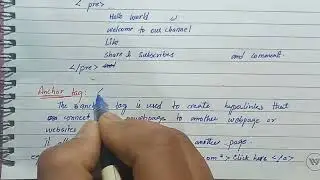 < pre>
Hello world
welcome to our channel
Like
Share & Subscribes and comment.
</pre>
Anchor tag:
The anchor tag is used to create hyperlinks that
connect webpage to another webpage or
websites
It another page.
com"> Click here </a>